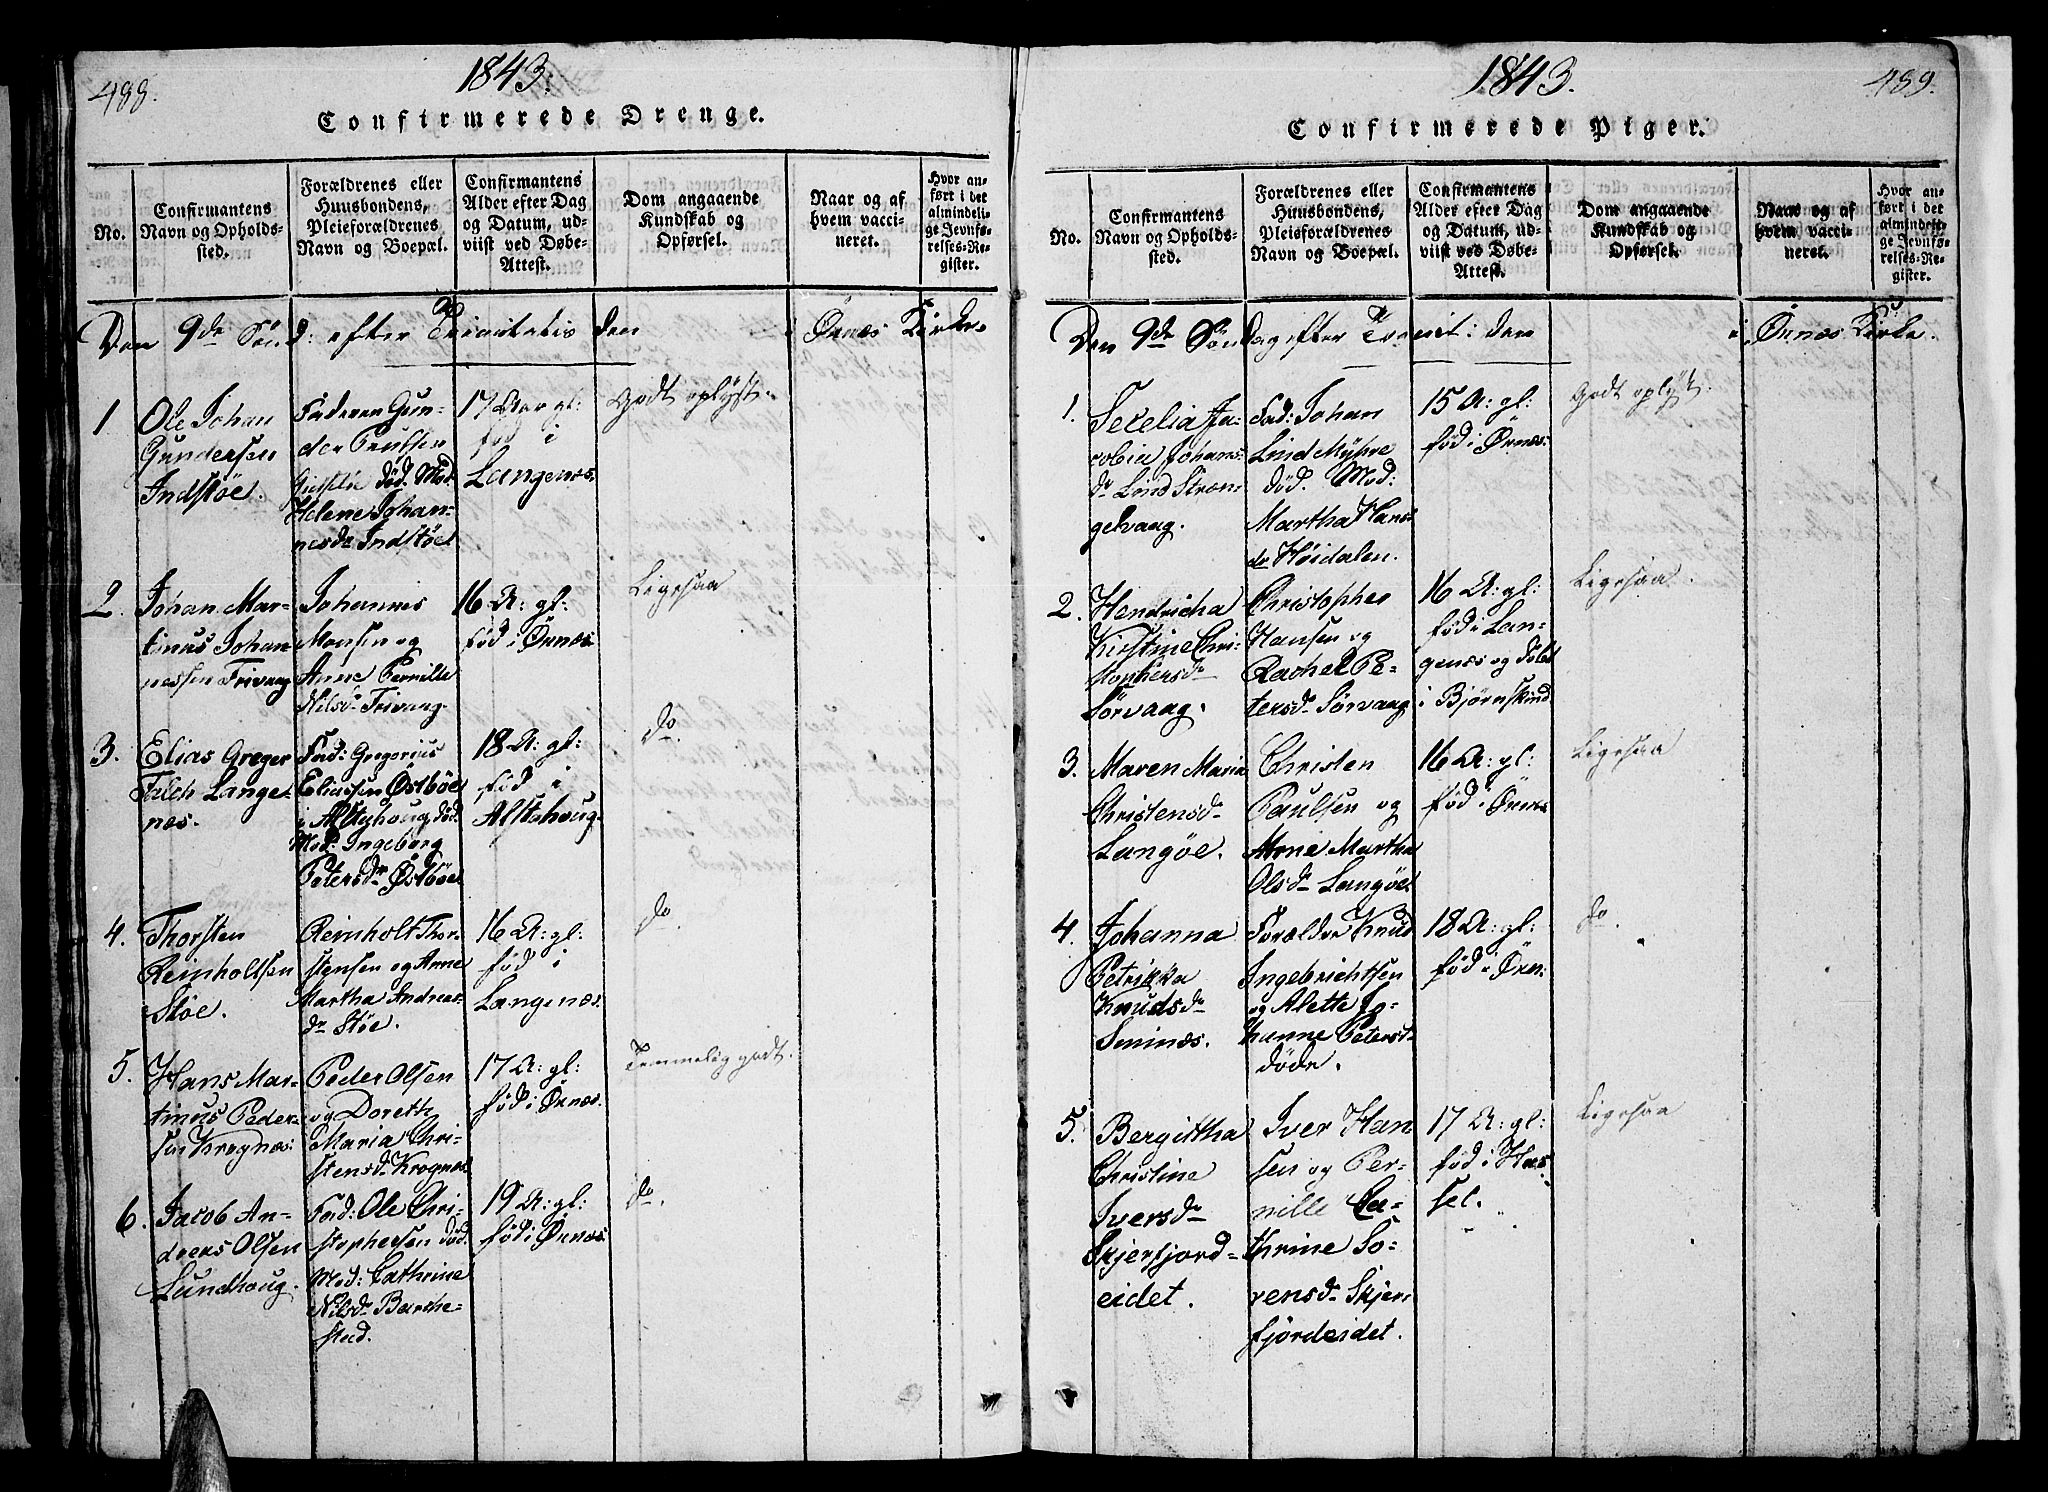 488.
1843.
Confirmerede Drenge.
No.
Confirmantens
Navn og Opholds-
sted.
Forældrenes eller
Huusbondens,
Pleieforældrenes
Navn og Boepæl.
Confirmantens
Alder efter Dag
og Datum, ud-
viist ved Døbe-
Attest.
Dom angaaende
Kundskab og
Opførsel.
Naar og af
hvem vacci-
neret.
Hvor an-
ført i det
almindeli-
ge Jevnfø-
relses-Re-
gister.
Den 9de Sønd: efter Trinitatis den i Ørnes Kirke.
1
Ole Johan
Gundersen
Indstöe.
Faderen Gun-
der Paulsen
död. Mod.
Helene Johan-
nesdr Indstöe
17 Aar gl:
fød i
Langenes.
Godt oplyst.
2.
Johan Mar-
tinus Johan-
nessen Trivaag
Johannes
Monsen og
Anne Pernille
Nilsdr Trivaag.
16 A: gl:
fød i Ørnes
Ligesaa
3.
Elias Greger
Falch Lange-
nes.
Fad: Gregorius
Eliassen Østböe
i Alstahoug död.
Mod: Ingeborg
Petersdr Østböe
18 A: gl:
fød i
Alstahoug.
do.
4.
Thorsten
Reinholtsen
Stöe.
Reinholt Thor-
stensen og Anne
Martha Andreas-
dr Stöe.
16 A: gl:
fød i
Langenæs.
do.
5.
Hans Mar-
tinus Peder-
sen Krognæs.
Peder Olsen
og Doreth
Maria Chri-
stensdr Krognæs.
17 A: gl:
fød i Ørnæs.
Temmelig godt.
6.
Jacob An-
dreas Olsen
Lundhoug.
Fad: Ole Chri-
stophersen död.
Mod: Cathrine
Nilsdr Barthe-
stad.
19 A: gl:
fød i Ørnæs
do.
1843.
489.
Confirmerede Piger.
No.
Confirmantens
Navn og Opholds-
sted.
Forældrenes eller
Huusbondens,
Pleieforældrenes
Navn og Boepæl.
Confirmantens
Alder efter Dag
og Datum, ud-
viist ved Døbe-
Attest.
Dom angaaende
Kundskab og
Opførsel.
Naar og af
hvem vacci-
neret.
Hvor an-
ført i det
almindeli-
ge Jevnfø-
relses-Re-
gister.
Den 9de Søndag efter Trinit: den i Ørnæs Kirke.
1.
Secelia Ja-
cobia Johans-
dr Lind Stran-
gelvaag.
Fad: Johan
Lind Myhre
död. Mod:
Martha Hans
dr Höidalen.
15 A: gl:
fød i Ørnæs
Godt oplyst.
2.
Hendricha
Kirstine Chri-
stophersdr
Sörvaag.
Christopher
Hansen og
Rachel Pe-
tersdr Sörvaag
16 A: gl:
fød i Lan-
genes og döbt
i Bjørnskind
Ligesaa.
3.
Maren Maria
Christensdr
Langöe.
Christen
Paulsen og
Anne Martha
Olsdr Langöe
16 A: gl:
fød i Ørnes
Ligesaa
4.
Johanna
Petrikka
Knudsdr
Sminæs.
Forældre Knud
Ingebrichtsen
og Alette Jo-
hanne Petersdr
döde.
18 A: gl:
fød i Ørn:
do.
5.
Bergittha
Christine
Iversdr
Skjerfjord-
eidet.
Iver Han
sen og Per-
nille Ca-
thrine Sö-
rensdr Skjer-
fjordeidet.
17 A: gl:
fød i Has-
sel.
Ligesaa